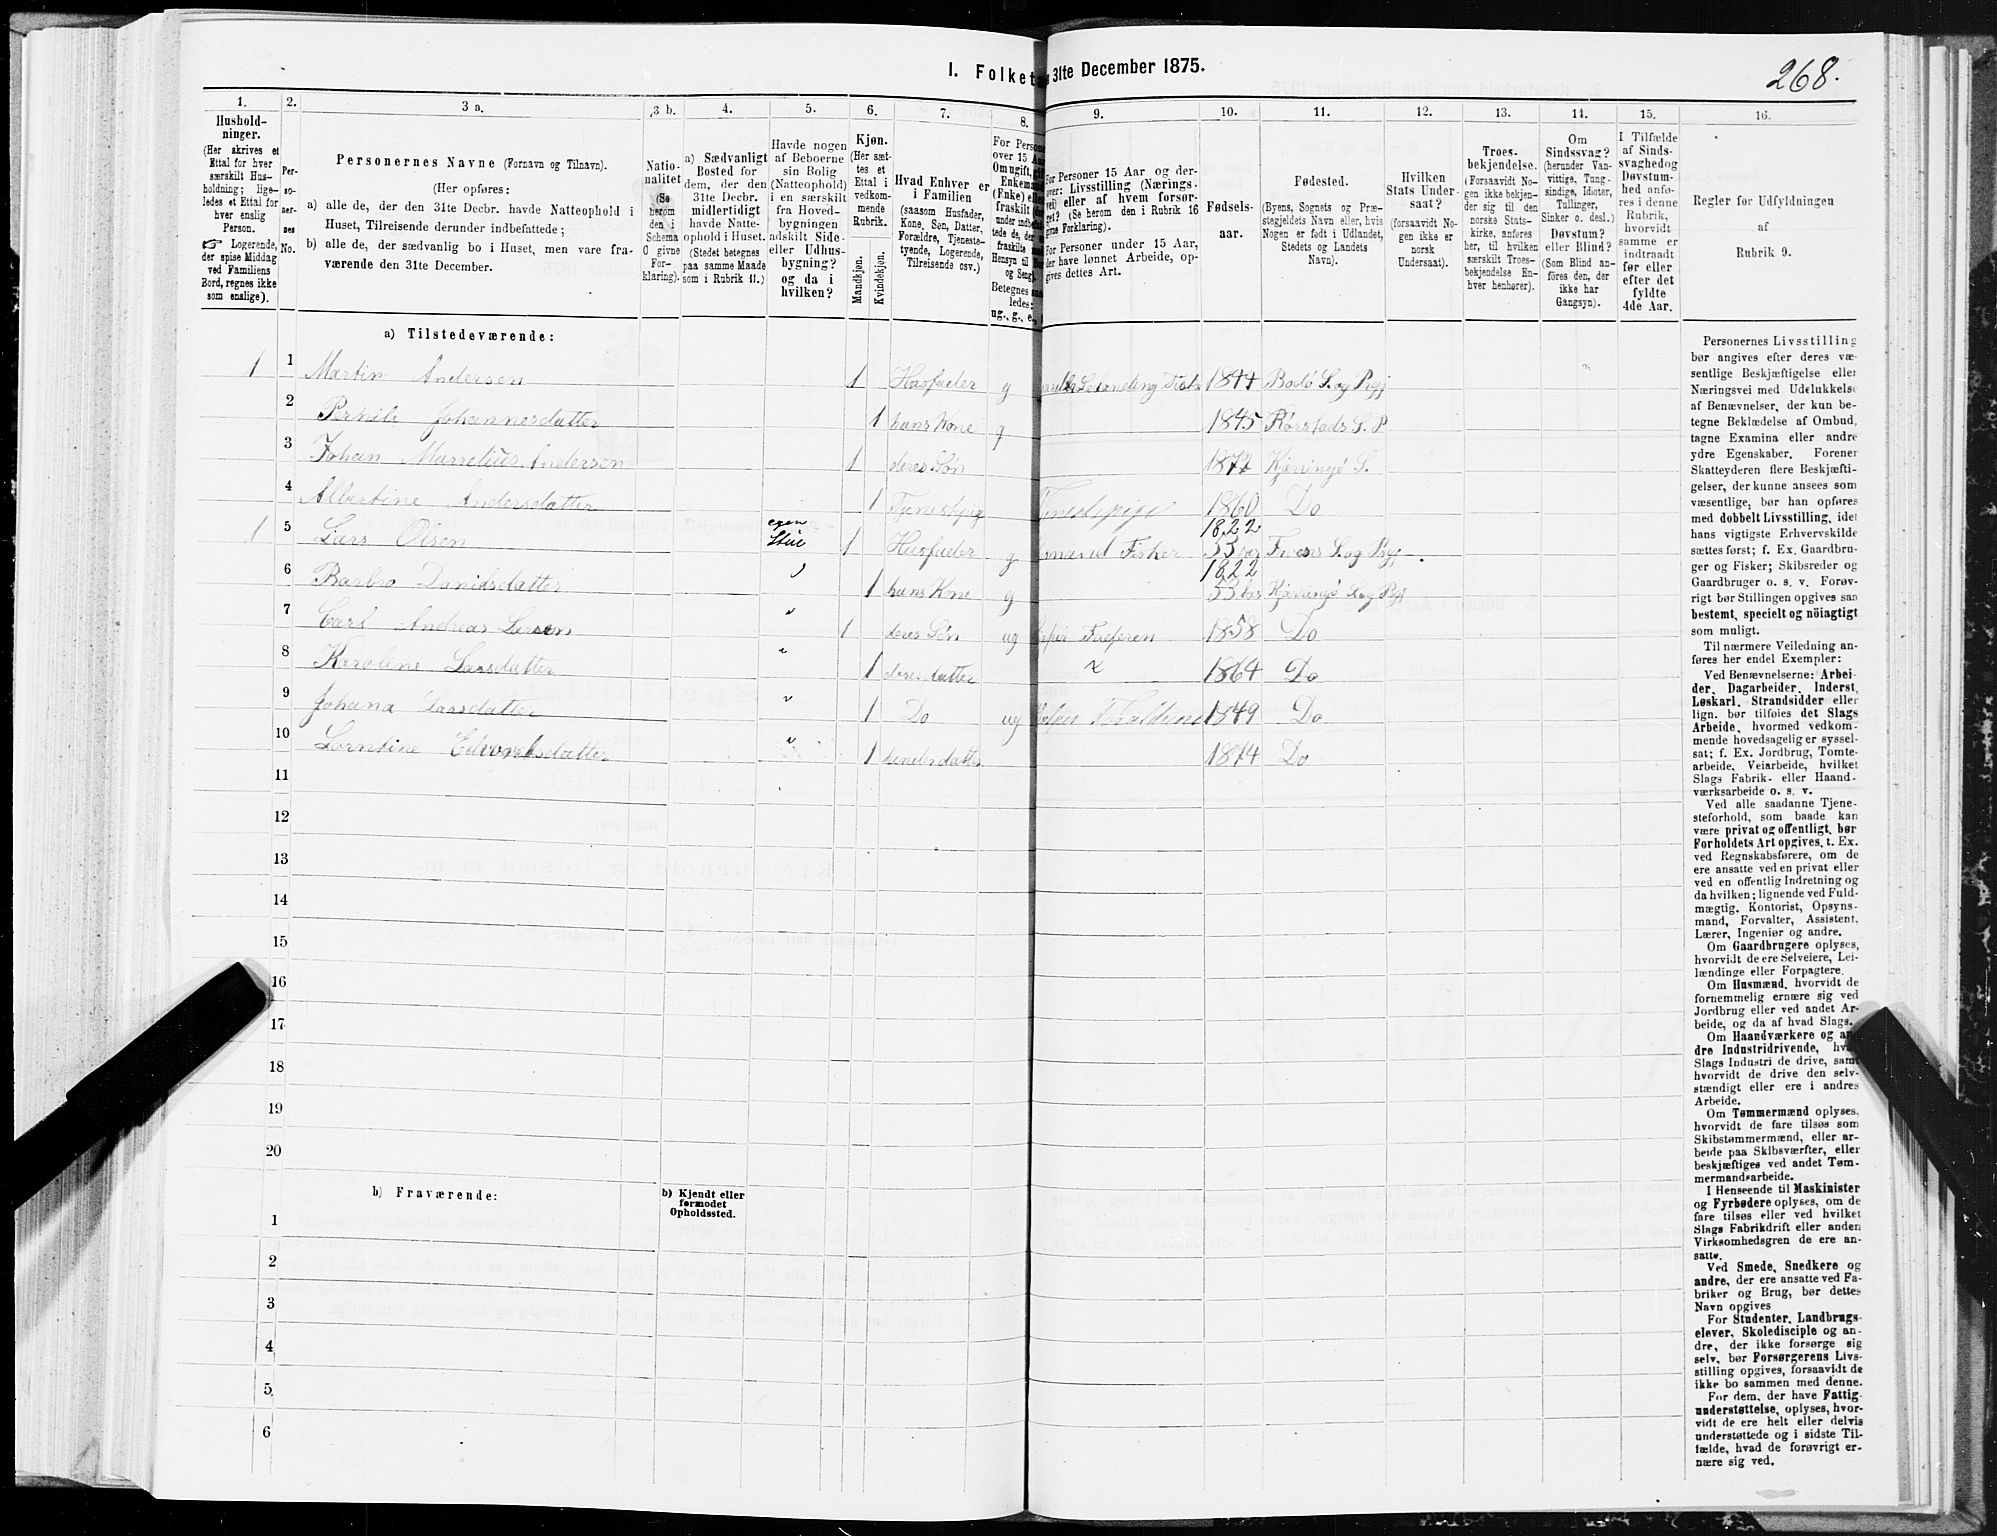 1. Folket 31te December 1875.
268.
1.
Hushold-
ninger.
(Her skrives et
Ettal for hver
særskilt Hus-
holdning; lige-
ledes et Ettal for
hver enslig
Person.
☞ Logerende,
der spise Middag
ved Familiens
Bord, regnes ikke
som enslige).
2.
Per-
so-
ner-
nes
No.
3 a.
Personernes Navne (Fornavn og Tilnavn).
(Her opføres:
a) alle de, der den 31te Decbr. havde Natteophold i
Huset, Tilreisende derunder indbefattede;
b) alle de, der sædvanlig bo i Huset, men vare fra-
værende den 31te December.
3 b.
Natio-
nalitet
(Se
herom
den i
Schema
O givne
For-
klaring).
4.
a) Sædvanligt
Bosted for
dem, der den
31te Decbr.
midlertidigt
havde Natte-
ophold i Huset.
(Stedet betegnes
paa samme Maade
som i Rubrik 11.)
5.
Havde nogen
af Beboerne
sin Bolig
(Natteophold)
i en særskilt
fra Hoved-
bygningen
adskilt Side-
eller Udhus-
bygning?
og da i
hvilken?
6.
Kjøn.
(Her sæt-
tes et
Ettal i
vedkom-
mende
Rubrik.
Mandkjøn.
Kvindekjøn.
7.
Hvad Enhver er
i Familien
(saasom Husfader,
Kone, Søn, Datter,
Forældre, Tjeneste-
tyende, Logerende,
Tilreisende osv.)
8.
For Person
over 15 Aa
Omugift, gi
Enkeman
(Enke) elle
fraskilt
under indbe
tede de,
fraskilte
Hensyn til B
og Seng).
Betegnes sa
ledes:
ug., g., e.,
9.
For Personer 15 Aar og der-
over: Livsstilling (Nærings-
vei) eller af hvem forsør-
get? (Se herom den i Rubrik 16
givne Forklaring).
For Personer under 15 Aar,
der have lønnet Arbeide, op-
gives dettes Art.
10.
Fødsels-
aar.
11.
Fødested.
(Byens, Sognets og Præ-
stegjeldets Navn eller, hvis
Nogen er født i Udlandet,
Stedets og Landets
Navn).
12.
Hvilken
Stats Under-
saat?
(forsaavidt No-
gen ikke er
norsk
Undersaat).
13.
Troes-
bekjendelse.
(Forsaavidt No-
gen ikke bekjen-
der sig til den
norske Stats-
kirke, anføres
her, til hvilken
særskilt Troes-
bekjendelse En-
hver henhører).
14.
Om
Sindssvag?
(herunder Van-
vittige, Tung-
sindige, Idioter,
Tullinger,
Sinker o. desl.)
Døvstum?
eller Blind?
(Som Blind an-
føres den, der
ikke har
Gangsyn).
15.
I Tilfælde
af Sinds-
svaghed og
Døvstum-
hed anfø-
res i denne
Rubrik,
hvorvidt
samme er
indtraadt
før eller
efter det
fyldte
4de Aar.
16.
Regler for Udfyldningen
af
Rubrik 9.
a) Tilstedeværende:
1 1 Martin Andersen 1 Husfader g 1844 Bodø S. og Prgj
2 Pernile Johannesdatter 1 hans Kone g 1845 S. P
3 Johan Marselius Andersen 1 deres Søn 1872 Kjerringø S.
4 Albertine Andersdatter 1 1860 Do
1 5 Lars Olsen egen Stue 1 Husfader g Fisker 1822 53 aar S. og Prgj
6 Barbro Danidsdatter " 1 hans Kone g 1822 53 aar Kjerringø S. og Prgj
7 Carl Andreas Larsen " 1 deres Søn ug Faderen 1858 Do
8 Karoline Larsdatter " 1 deres datter " 1864 Do
9 Johana Larsdatter " 1 Do ug 1849 Do
10 Lorntine Edvardsdatter " 1 hendes datter 1874 Do
11
12
13
14
15
16
17
18
19
20
b) Fraværende:
b) Kjendt eller
formodet
Opholdssted.
1
2
3
4
5
6
Personernes Livsstilling
bør angives efter deres væ-
sentlige Beskjæftigelse eller
Næringsvei med Udelukkelse
af Benævnelser, der kun be-
tegne Beklædelse af Ombud,
tagne Examina eller andre
ydre Egenskaber. Forener
Skatteyderen flere Beskjæfti-
gelser, der kunne ansees som
væsentlige, bør han opføres
med dobbelt Livsstilling, idet
hans vigtigste Erhvervskilde
sættes først; f. Ex. Gaardbru-
ger og Fisker; Skibsreder og
Gaardbruger o. s. v. Forøv-
rigt bør Stillingen opgives saa
bestemt, specielt og nöiagtigt
som muligt.
Til nærmere Veiledning an-
føres her endel Exempler:
Ved Benævnelserne: Arbei-
der, Dagarbeider, Inderst,
Løskarl, Strandsidder eller
lign. bør tilføies det Slags
Arbeide, hvormed vedkom-
mende hovedsagelig er syssel-
sat; f. Ex. Jordbrug, Tomte-
arbeide, Veiarbeide, hvilket
Slags Fabrik- eller Haand-
værksarbeide o. s. v.
Ved alle saadanne Tjene-
steforhold, som baade kan
være privat og offentligt, bør
Forholdets Art opgives, t. Ex.
ved Regnskabsførere, om de
ere ansatte ved en privat eller
ved en offentlig Indretning og
da hvilken; lignende ved Fuld-
mægtig, Kontorist, Opsyns-
mand, Forvalter, Assistent,
Lærer, Ingeniør og andre.
Om Gaardbrugere oplyses,
hvorvidt de ere Selveiere, Lei-
lændinge eller Forpagtere.
Om Husmænd, hvorvidt de
fornemmelig ernære sig ved
Jordbrug eller ved andet Ar-
beide, og da af hvad Slags.
Om Haandværkere og an-
dre Industridrivende, hvad
Slags Industri de drive, samt
hvorvidt de drive den selv-
stændigt eller ere i andres
Arbeide.
Om Tømmermænd oplyses,
hvorvidt de fare tilsøs som
Skibstømmermænd, eller ar-
beide paa Skibsværfter, eller
beskjæftiges ved andet Tøm-
mermandsarbeide.
I Henseende til Maskinister
og Fyrbødere oplyses, om de
fare tilsøs eller ved hvilket
Slags Fabrikdrift eller anden
Virksomhedsgren de ere an-
satte.
Ved Smede, Snedkere og
andre, der ere ansatte ved Fa-
briker og Brug, bør dettes
Navn opgives
For Studenter, Landbrugs-
elever, Skoledisciple og an-
dre, der ikke forsørge sig
selv, bør Forsørgerens Livs-
stilling opgives, forsaavidt de
ikke bo sammen med denne.
For dem, der have Fattig-
understøttelse, oplyses, hvor-
vidt de ere helt eller delvis
understøttede og i sidste Til-
fælde, hvad de forøvrigt er-
nære sig ved.